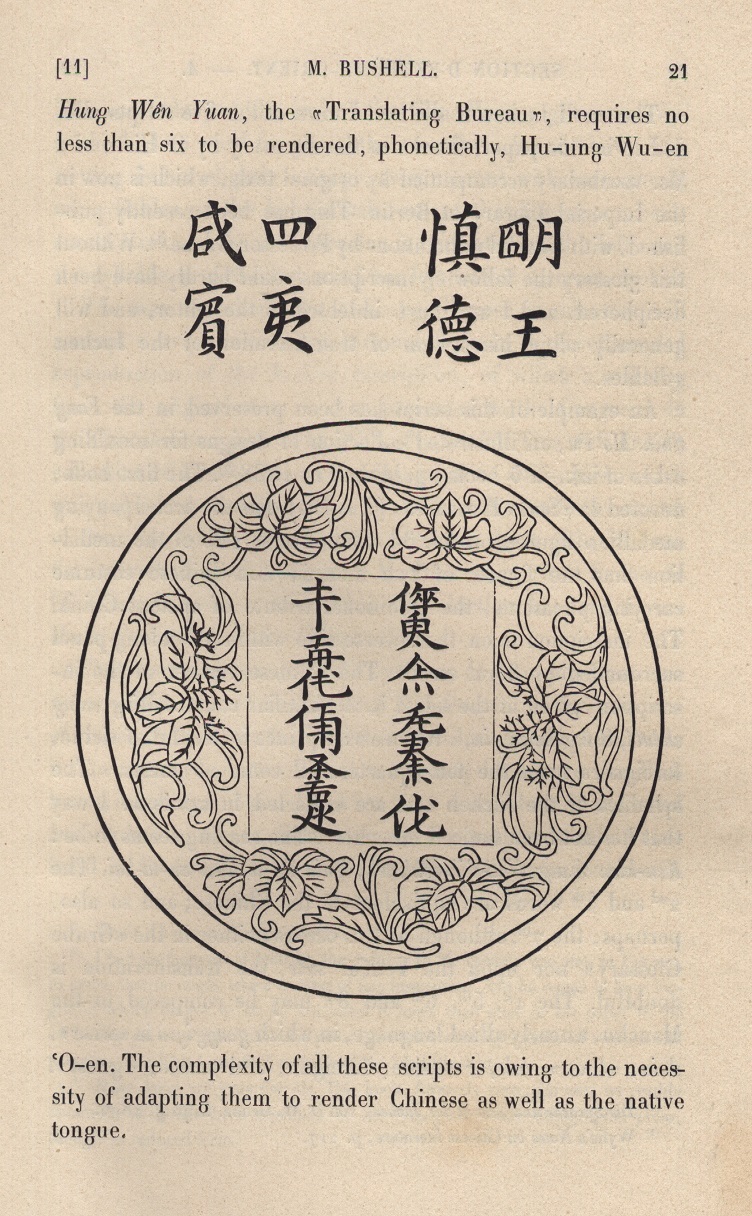 [11] M. BUSHELL. 21
Hung Wên Yuan, the «Translating Bureau», requires no
less than six to be rendered, phonetically, Hu-ung Wu-en
朙王
慎德
四夷
咸賓
ʿO-en. The complexity of all these scripts is owing to the neces-
sity of adapting them to render Chinese as well as the native
tongue.